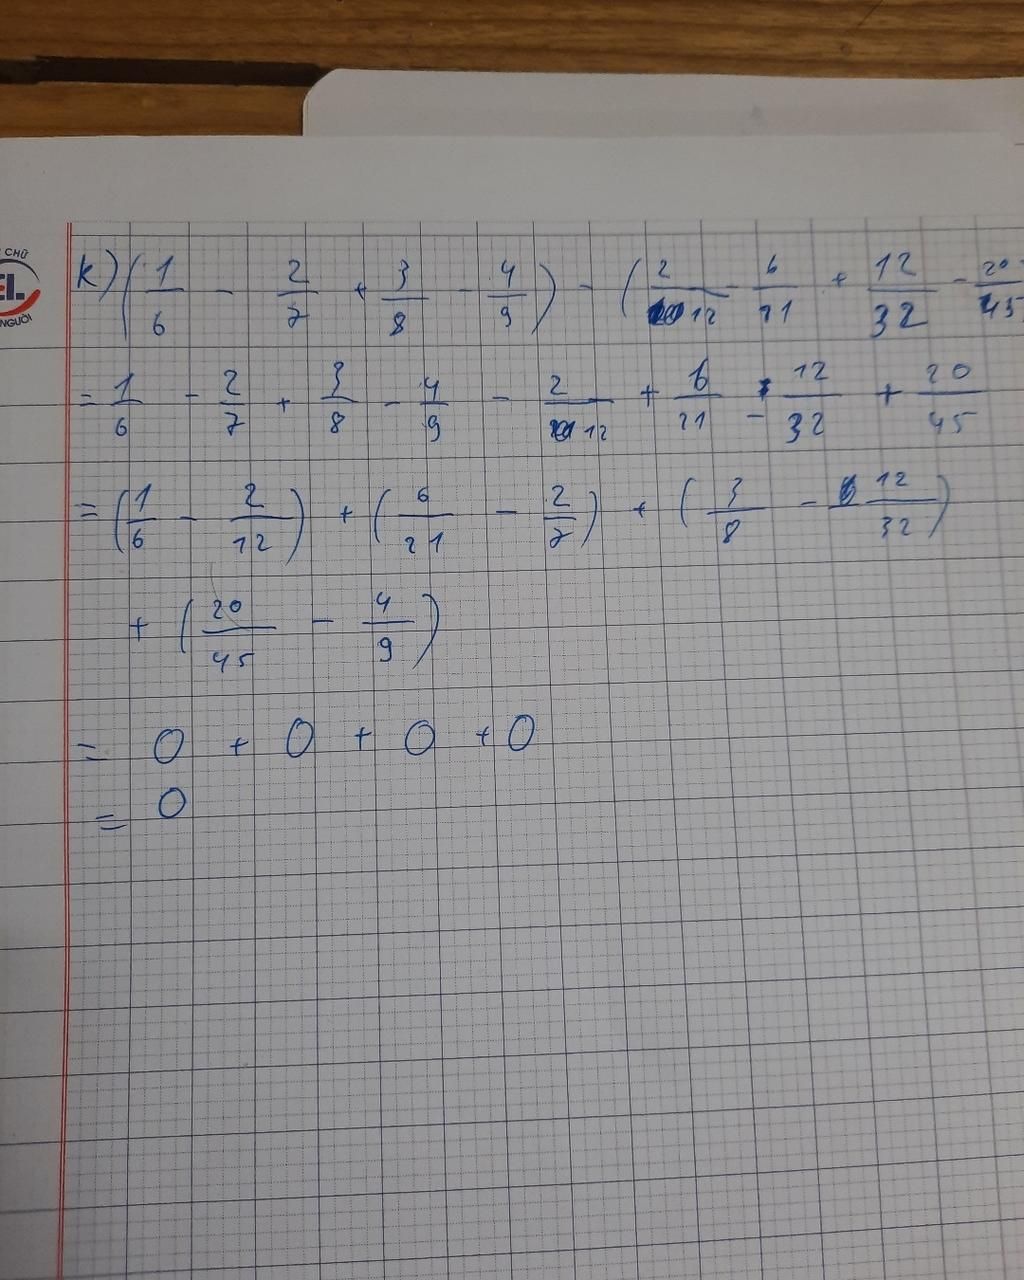 CHỮ
EL
NGƯỜI
k) (1/6 - 2/7 + 3/8 - 4/9) - (2/12 - 6/21 + 12/32 - 20/45
= 1/6 - 2/7 + 3/8 - 4/9 - 2/12 + 6/21 - 12/32 + 20/45
= (1/6 - 2/12) + (6/21 - 2/7) + (3/8 - 12/32)
+ (20/45 - 4/9)
= 0 + 0 + 0 + 0
= 0